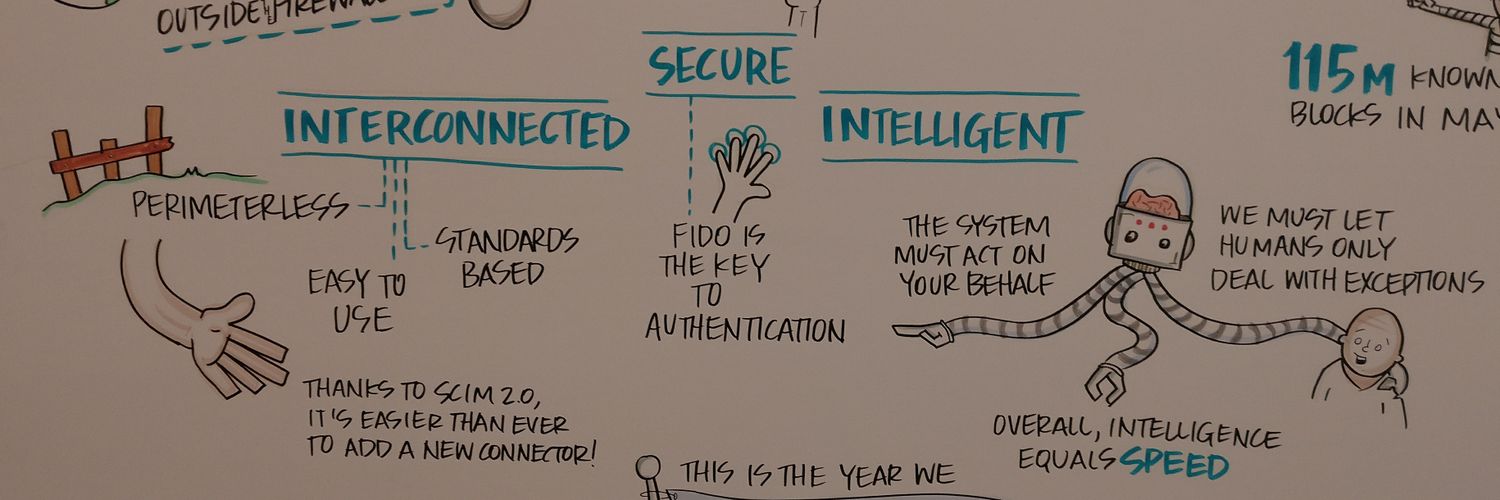 OUTSIDE FIREWALL
SECURE
INTERCONNECTED
INTELLIGENT
115M KNOWN
BLOCKS IN MAY
PERIMETERLESS
STANDARDS
BASED
EASY TO
USE
THANKS TO SCIM 2.0,
IT'S EASIER THAN EVER
TO ADD A NEW CONNECTOR!
FIDO IS
THE KEY
TO
AUTHENTICATION
THE SYSTEM
MUST ACT ON
YOUR BEHALF
WE MUST LET
HUMANS ONLY
DEAL WITH EXCEPTIONS
OVERALL, INTELLIGENCE
EQUALS SPEED
THIS IS THE YEAR WE